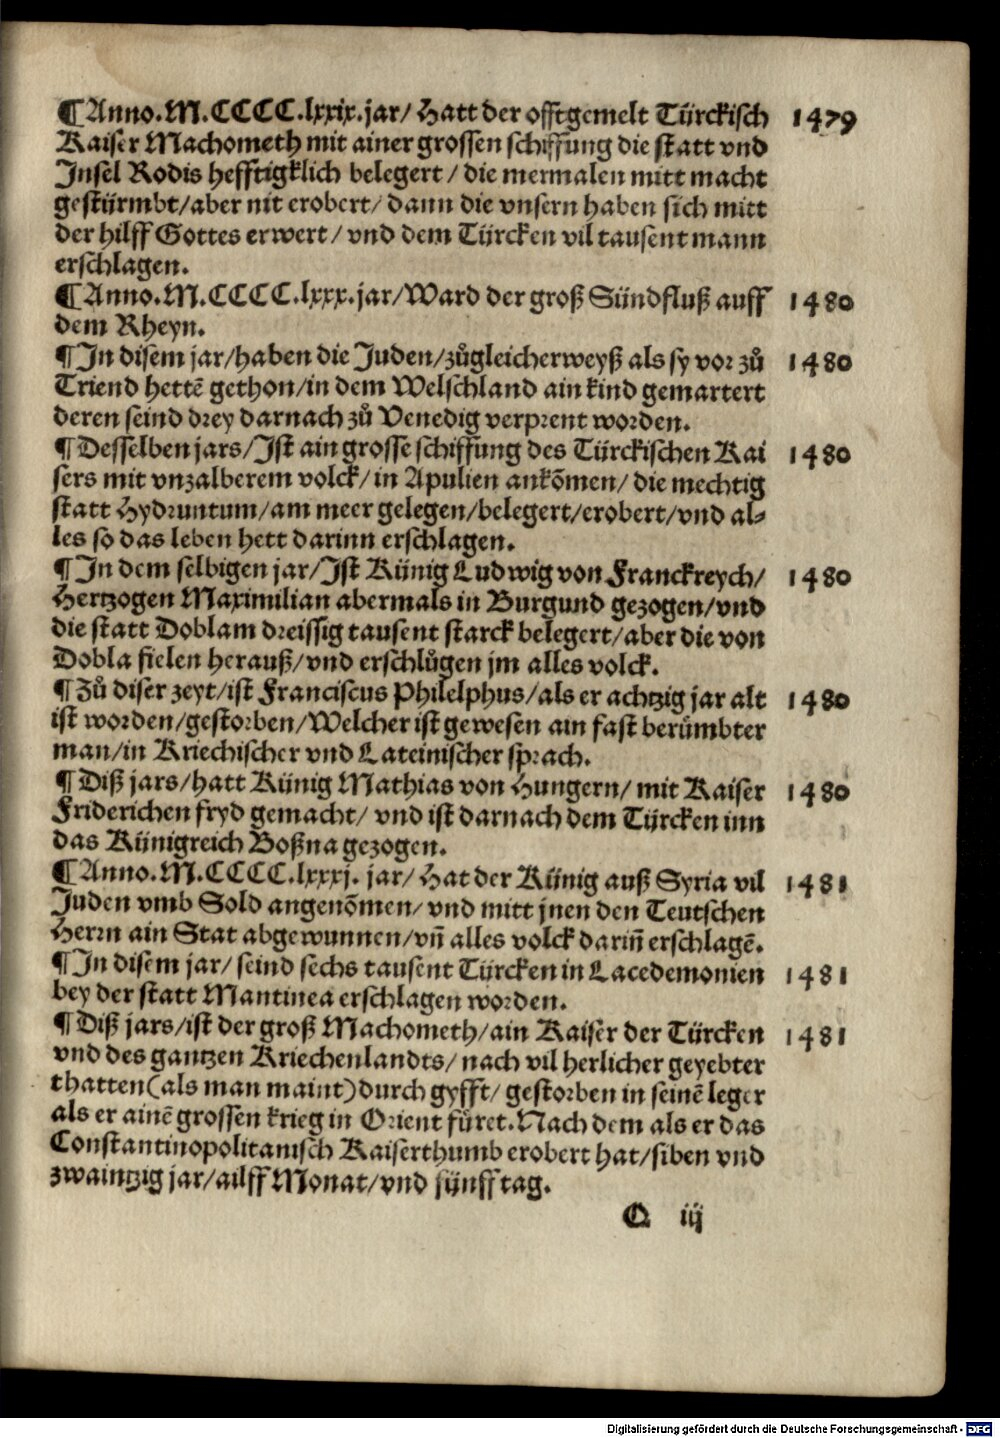 ¶Anno.M.CCCC.lxxix.jar/ Hatt der offtgemelt Türckisch 1479
Kaiser Machometh mit ainer grossen schiffung die statt vnd
Insel Rodis hefftigklich belegert / die mermalen mitt macht
gestürmbt/aber nit erobert/ dann die vnsern haben sich mitt
der hilff Gottes erwert / vnd dem Türcken vil tausent mann
erschlagen.
¶Anno.M.CCCC.lxxx.jar/Ward der groß Sündfluß auff 1480
dem Rheyn.
¶In disem jar/haben die Juden/zůgleicherweyß als sy vor zů 1480
Triend hettē gethon/in dem Welschland ain kind gemartert
deren seind drey darnach zů Venedig verprent worden.
¶Desselben jars/Ist ain grosse schiffung des Türckischen Kai 1480
sers mit vnzalberem volck/ in Apulien ankōmen/ die mechtig
statt Hydruntum/am meer gelegen/belegert/erobert/vnd al⸗
les so das leben hett darinn erschlagen.
¶In dem selbigen jar/Ist Künig Ludwig von Franckreych/ 1480
Hertzogen Maximilian abermals in Burgund gezogen/vnd
die statt Doblam dreissig tausent starck belegert/aber die von
Dobla fielen herauß/vnd erschlůgen jm alles volck.
¶Zů diser zeyt/ist Franciscus Philelphus/als er achtzig jar alt 1480
ist worden/gestorben/Welcher ist gewesen ain fast berůmbter
man/in Kriechischer vnd Lateinischer sprach.
¶Diß jars/hatt Künig Mathias von Hungern/ mit Kaiser 1480
Friderichen fryd gemacht/ vnd ist darnach dem Türcken inn
das Künigreich Boßna gezogen.
¶Anno.M.CCCC.lxxxj. jar/ Hat der Künig auß Syria vil 1481
Juden vmb Sold angenōmen/ vnd mitt jnen den Teutschen
Herrn ain Stat abgewunnen/vn̄ alles volck darin̄ erschlagē.
¶In disem jar/ seind sechs tausent Türcken in Lacedemonien 1481
bey der statt Mantinea erschlagen worden.
¶Diß jars/ist der groß Machometh/ain Kaiser der Türcken 1481
vnd des gantzen Kriechenlandts/ nach vil herlicher geyebter
thatten(als man maint)durch gyfft/ gestorben in seinē leger
als er ainē grossen krieg in Orient fůret.Nach dem als er das
Constantinopolitanisch Kaiserthumb erobert hat/siben vnd
zwaintzig jar/ailff Monat/vnd fünff tag.
Q iij
Digitalisierung gefördert durch die Deutsche Forschungsgemeinschaft - DFG